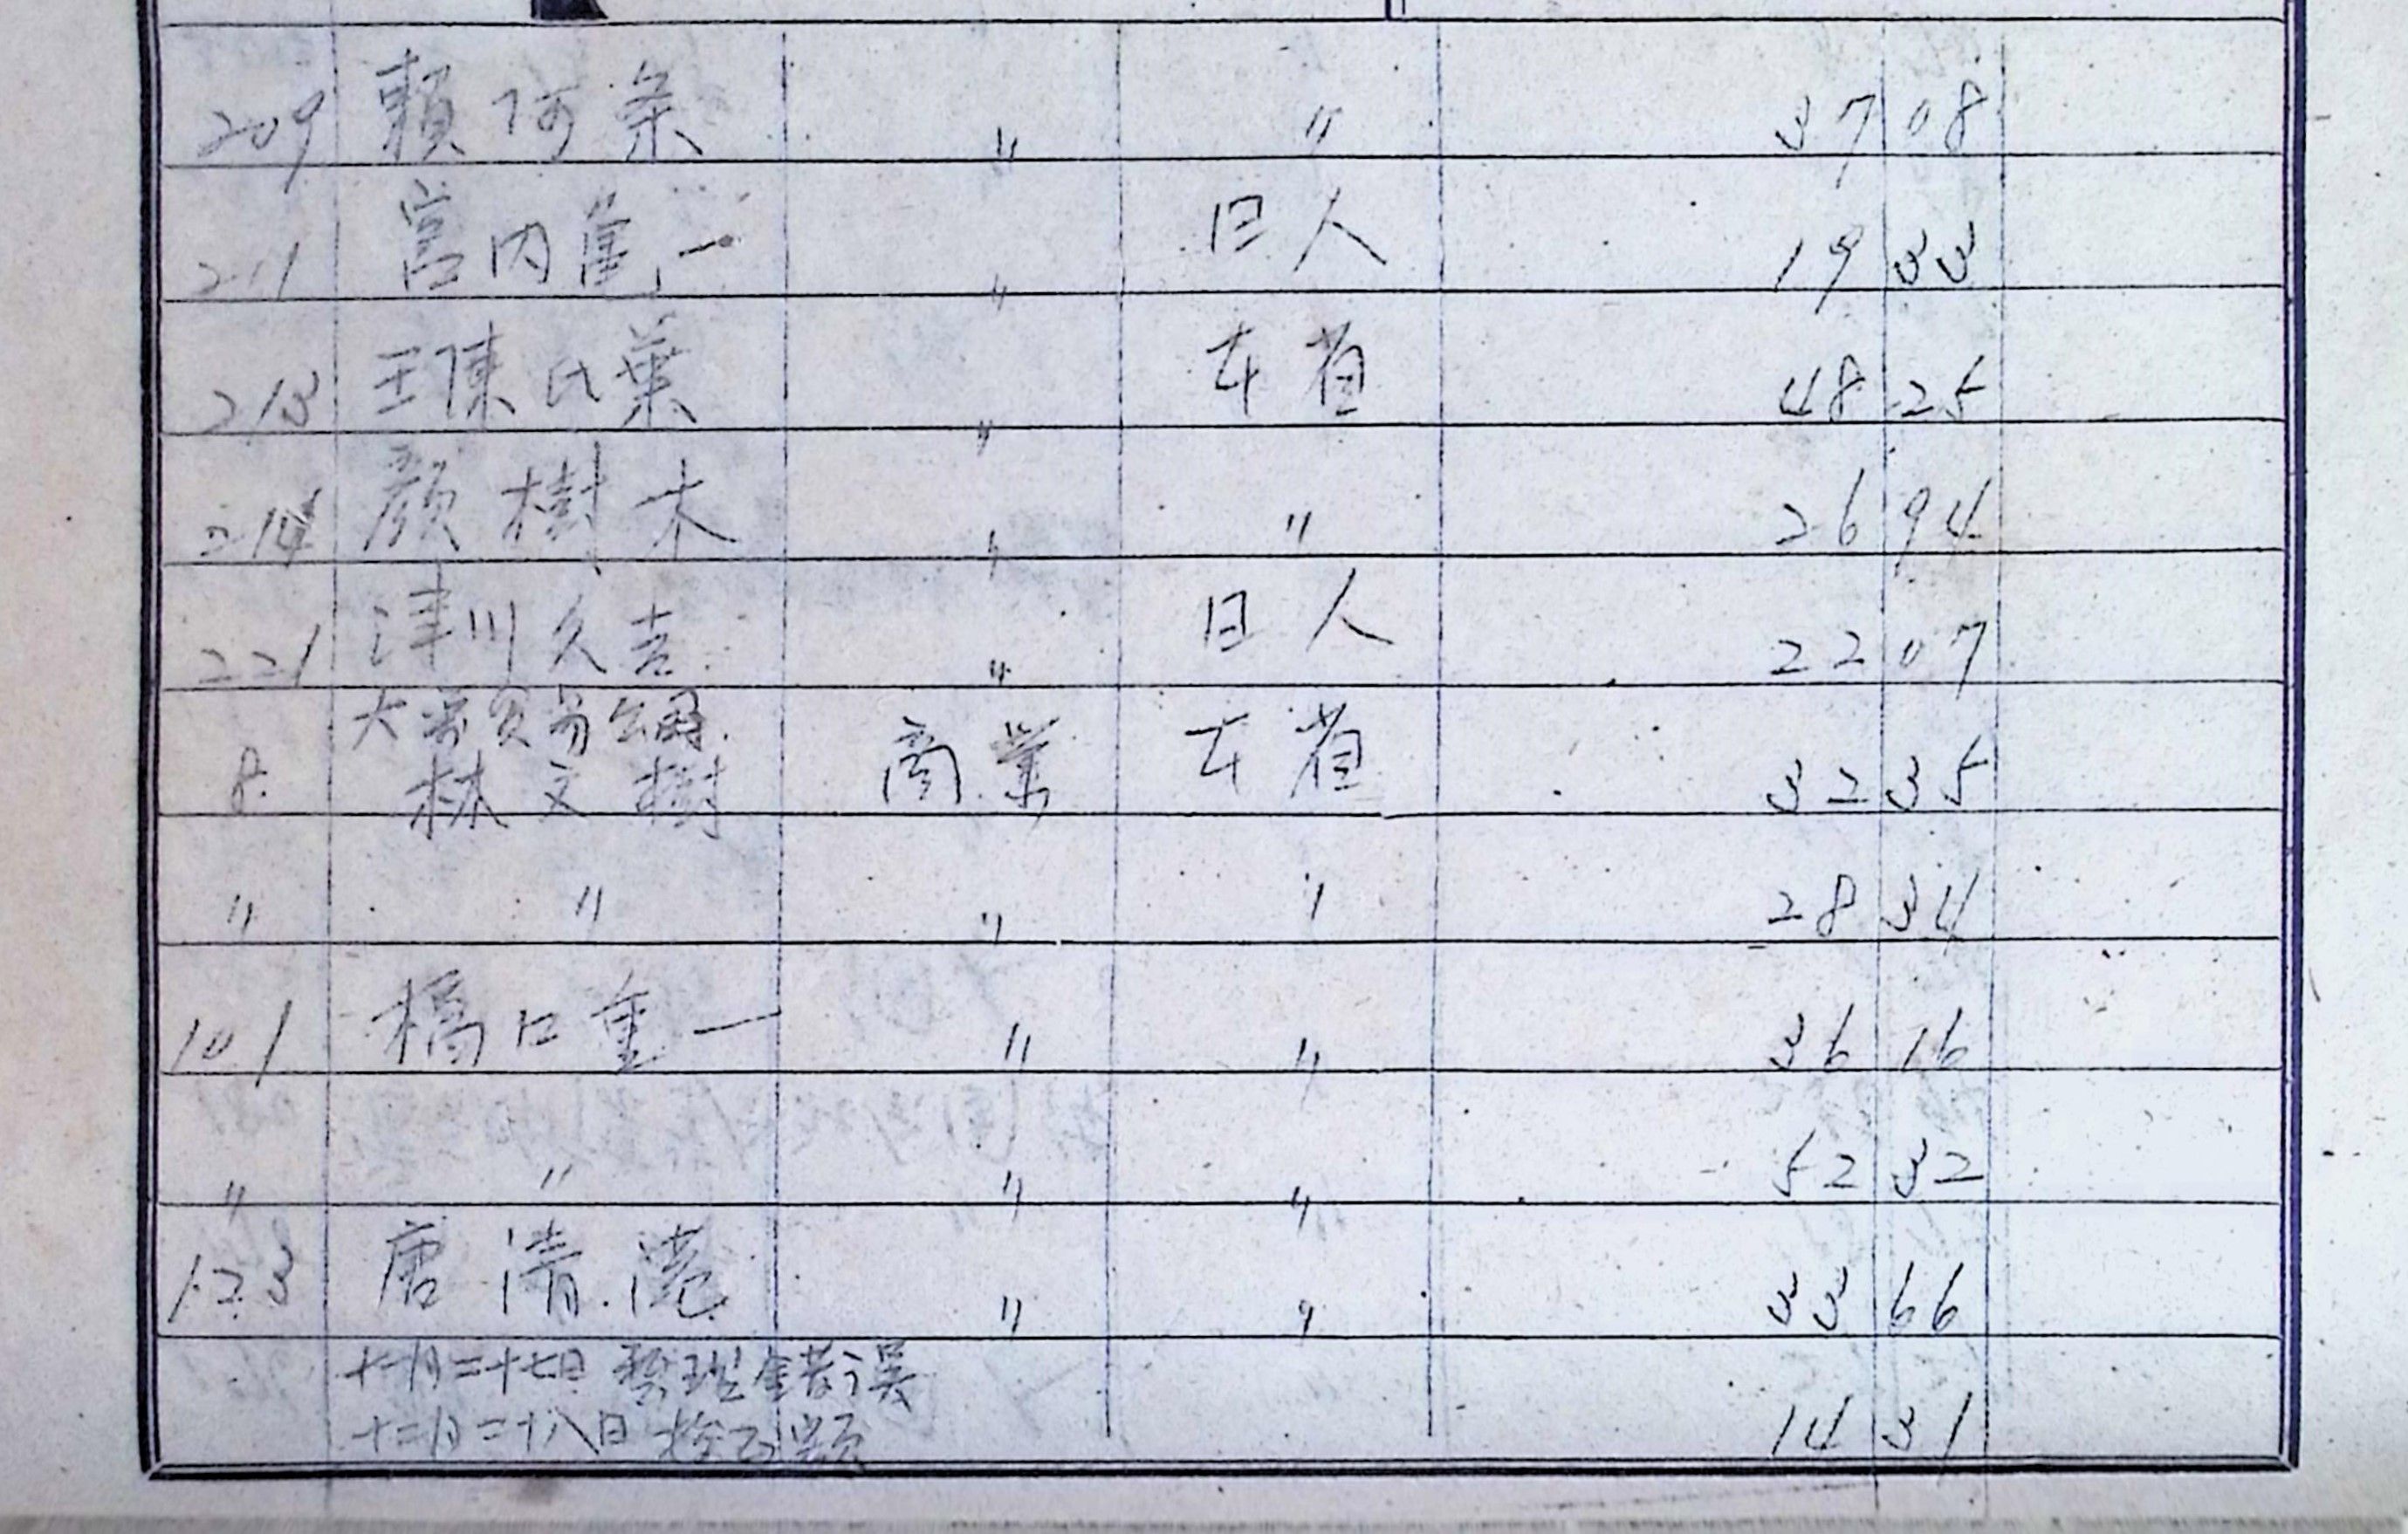 209 賴阿条 〃 〃 37 08
211 宮内重一 〃 日人 19 33
213 王陳氏葉 〃 本省 48 25
214 顏樹木 〃 〃 26 94
221 津川久吉 〃 日人 22 07
大 貿易公司
8 林文樹 商業 本省 32 35
〃 〃 〃 〃 28 34
101 橋口重一 〃 〃 36 16
〃 〃 〃 〃 52 32
123 唐清港 〃 〃 33 66
十一月二十七日 整理錯誤
十二月二十八日 14 31